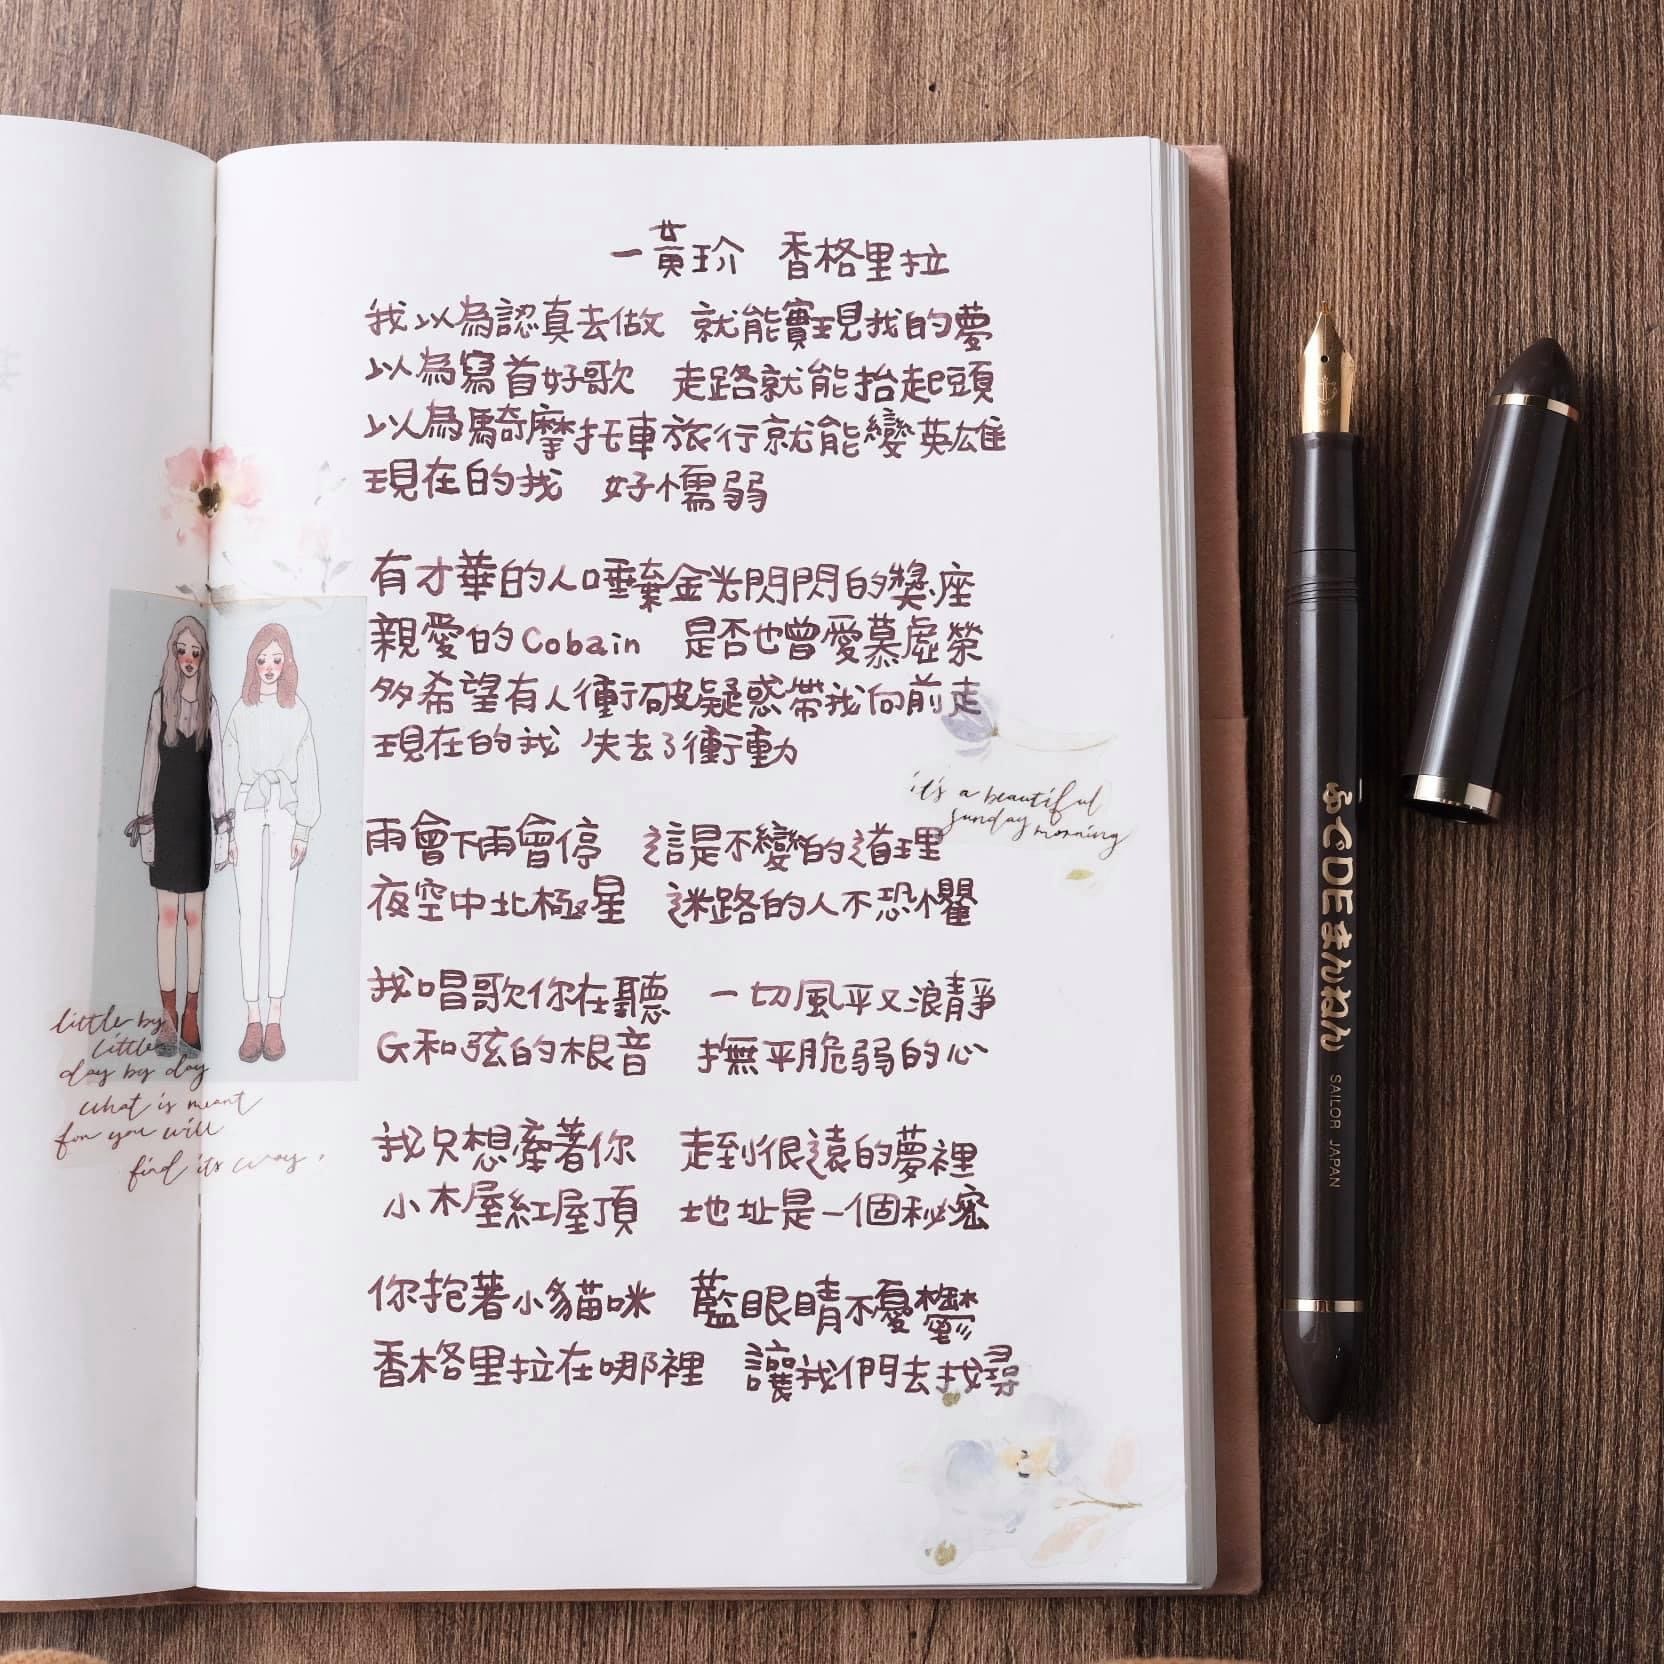 一黃玠 香格里拉
我以為認真去做 就能實現我的夢
以為寫首好歌 走路就能抬起頭
以為騎摩托車旅行就能變英雄
現在的我 好懦弱
有才華的人唾棄金光閃閃的獎座
親愛的Cobain 是否也曾愛慕虛榮
多希望有人衝破疑惑帶我向前走
現在的我 失去了衝動
雨會下雨會停 這是不變的道理
夜空中北極星 迷路的人不恐懼
我唱歌你在聽 一切風平又浪靜
G和弦的根音 撫平脆弱的心
我只想牽著你 走到很遠的夢裡
小木屋紅屋頂 地址是一個秘密
你抱著小貓咪 藍眼睛不憂鬱
香格里拉在哪裡 讓我們去找尋
it's a beautiful
sunday morning
little by
little
day by day
what is meant
for you will
find its way.
ふでDEまんねん SAILOR JAPAN
MF